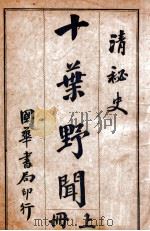 清祕史
十葉野聞
五冊
國華書局印行